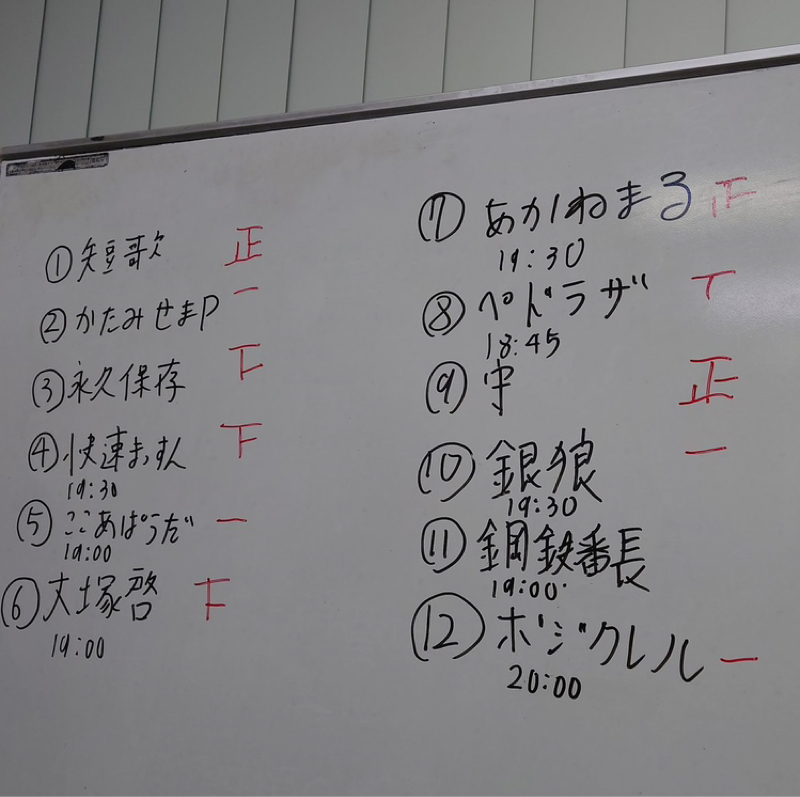 ①短歌 正
②かたみせまP 一
③永久保存 下
④快速
19:30 下
⑤ここあぱうだ 一
19:00
⑥大塚啓 下
19:00
⑦あかねまる 正
19:30
⑧ペドラザ 丅
18:45
⑨守 正
⑩銀狼 一
19:30
⑪鋼鉄番長
19:00
⑫ボジクレル 一
20:00